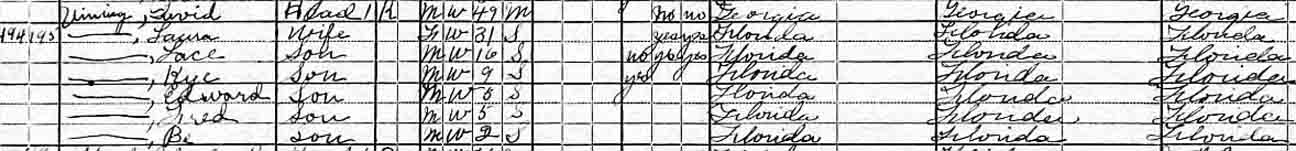 Vining, David Head 1 R M W 49 M no no Georgia Georgia Georgia
194 195 ——, Laura Wife F W 31 S yes yes Florida Florida Florida
——, Lace Son M W 16 S no yes yes Florida Florida Florida
——, Kye Son M W 9 S yes Florida Florida Florida
——, Edward Son M W 5 S Florida Florida Florida
——, Fred Son M W 5 S Florida Florida Florida
——, Be Son M W 2 S Florida Florida Florida